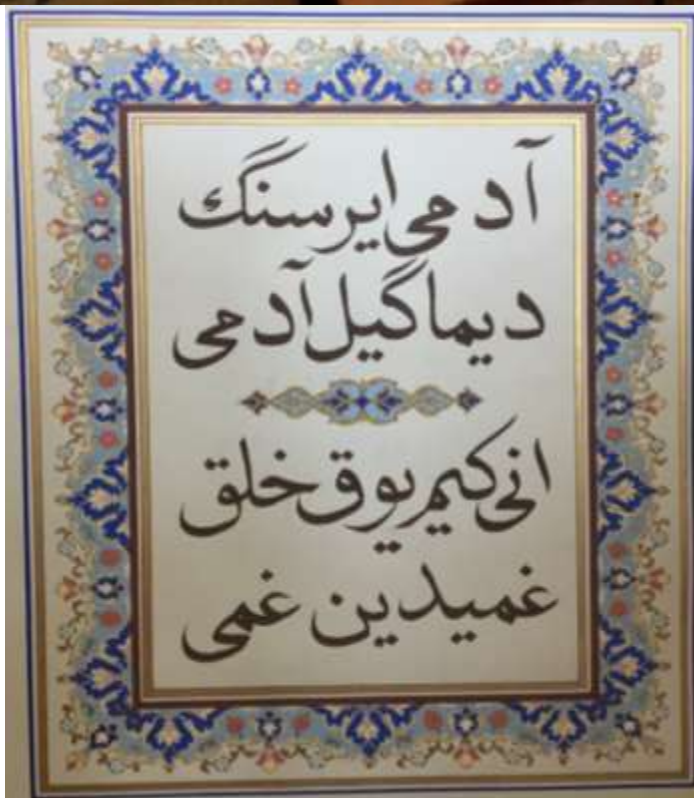 آدمی ایرسنگ
دیماگیل آدمی
انی کیم یوق خلق
غمیدین غمی